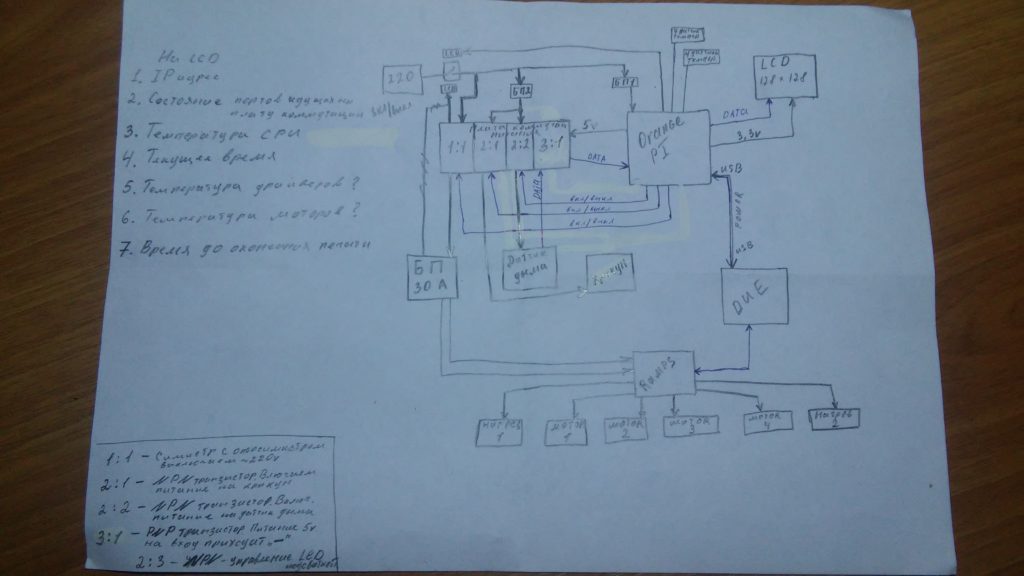 На LCD
1. IP адрес
2. Состояние портов идущих на
плату коммутации вкл/выкл
3. Температура CPU
4. Текущее время
5. Температура драйверов?
6. Температура моторов?
7. Время до окончания печати
220
БП2
БП1
LCD
128*128
DATA
3,3v
Orange
PI
5v
DATA
1:1
2:1
2:2
3:1
DATA
вкл/выкл
вкл/выкл
вкл/выкл
USB
POWER
USB
БП
30А
Датчик
дыма
DUE
RAMPS
Нагрев
1
Мотор
1
Мотор
2
Мотор
3
Мотор
4
Нагрев
2
1:1 - Симистр с
включаем ~220v
2:1 - NPN транзистор. Включаем
питание на
2:2 - NPN транзистор. Включ.
питание на датчик дыма
3:1 - PNP транзистор Питание 5v
на вход приходит „-"
2:3 - NPN - управление LED
подсветкой